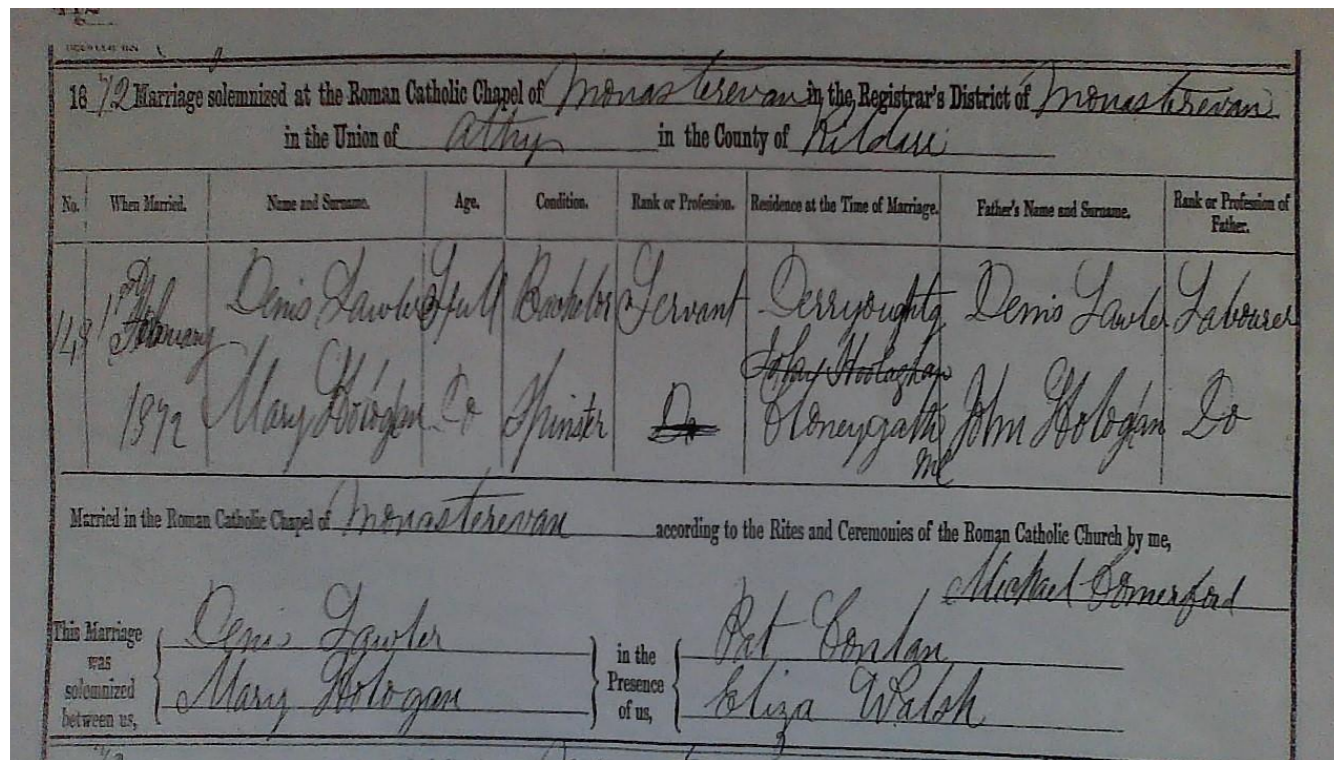 1872 Marriage solemnized at the Roman Catholic Chapel of Monasterevan in the Registrar's District of Monasterevan
in the Union of Athy in the County of Kildare
No. When Married. Name and Surname. Age. Condition. Rank or Profession. Residence at the Time of Marriage. Father's Name and Surname. Rank or Profession of Father.
149 1st February Denis Lawler Full Bachelor Servant Derryoughta Denis Lawler Labourer
John Hoolaghan
1872 Mary Hologan Do Spinster Do John Hologan Do
Married in the Roman Catholic Chapel of Monasterevan according to the Rites and Ceremonies of the Roman Catholic Church by me,
Michael Comerford
This Marriage was solemnized between us, Denis Lawler in the Presence of us, Pat Conlan
Mary Hologan Eliza Walsh